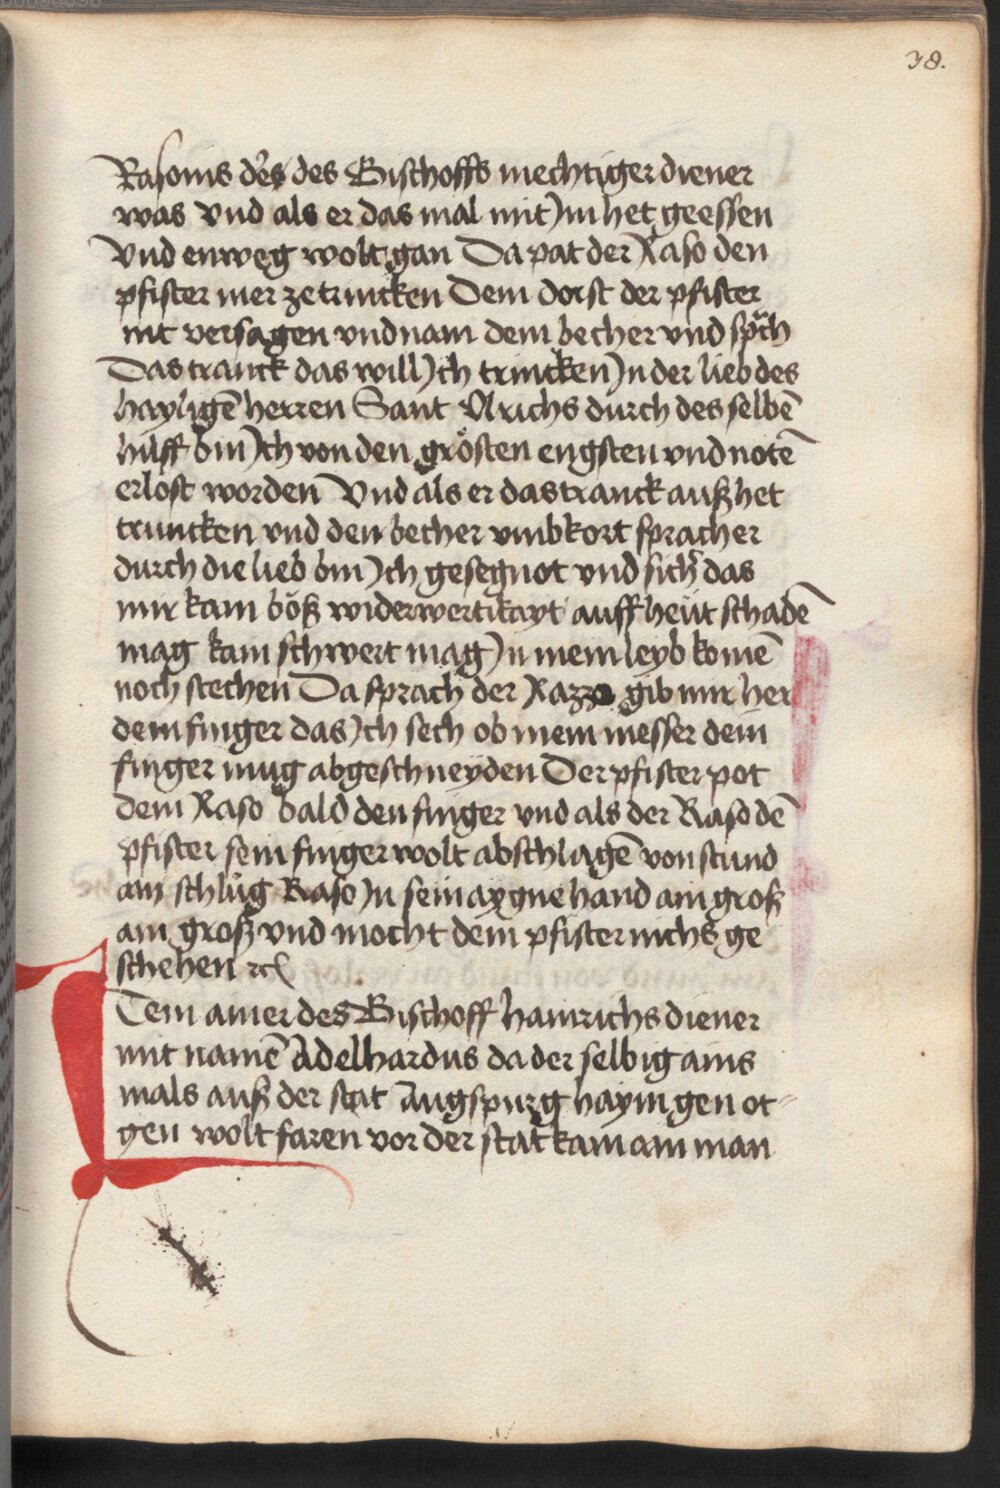 38.
Rasonis des des Bischoffs mechtiger diener
was vnd als er das mal mit Jm het geessen
Vnd enweg wolt gan Da pat der Raso den
pfister mer ze trincken Dem dorst der pfister
nit versagen vnd nam dem becher vnd sprach
Das tranck das will Jch trincken Jn der lieb des
hayligē herren Sant Vlrichs durch des selbē
hilff bin Jch von den grösten engsten vnd notē
erlost worden Vnd als er das tranck auß het
truncken vnd den becher vmbkort sprach er
durch die lieb bin Jch gesegnot vnd sicher das
mir kain böß widerwertikayt auff heüt schadē
mag kain schwert mag Jn mein leyb komē
noch stechen Da sprach der Razzo gib mir her
dein finger das Jch sech ob mein messer dein
finger mug abgeschneyden Der pfister pot
dem Raso bald den finger vnd als der Raso dē
pfister sein finger wolt abschlagē von stund
an schlůg Raso Jn sein aygne hand ain groß
ain groß vnd mocht dem pfister nichs ge
schehen ⁊c
Item ainer des Bischoff hainrichs diener
mit namē Adelhardus da der selbig ains
mals auß der stat Augspurg haym gen ot
gen wolt faren vor der stat kam ain man